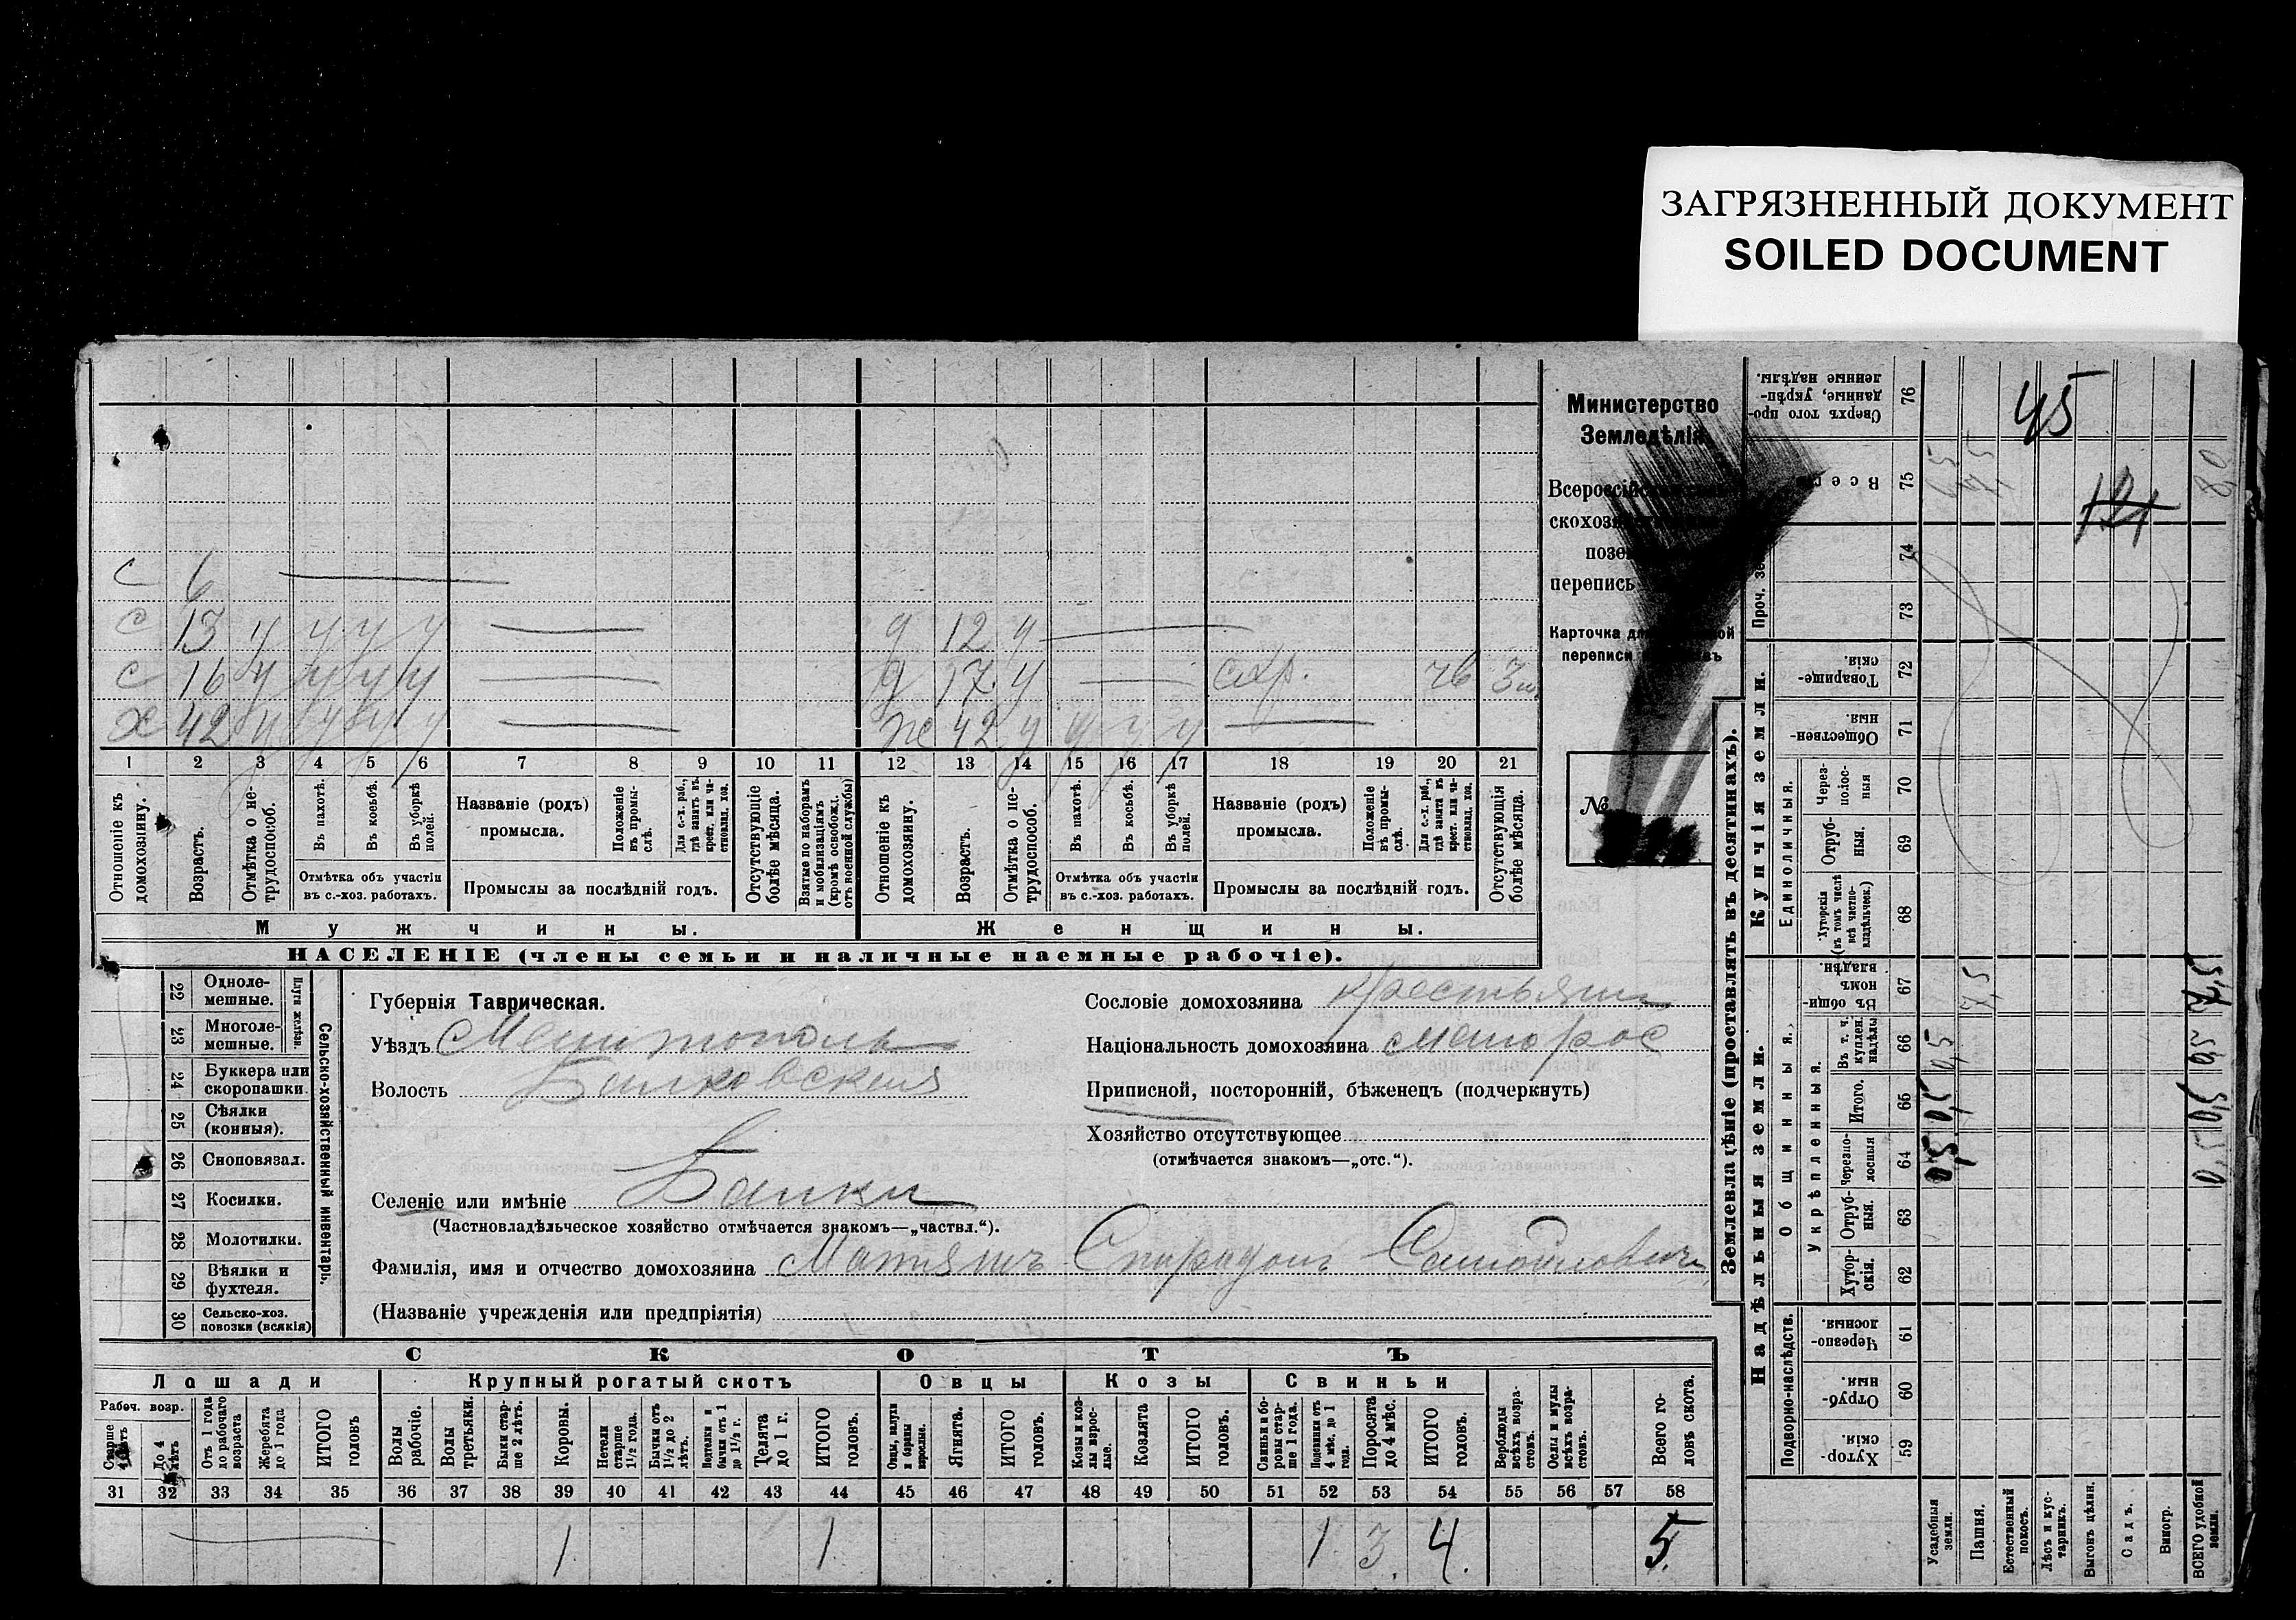 ЗАГРЯЗНЕННЫЙ ДОКУМЕНТ
SOILED DOCUMENT
Министерство
Земледѣлія.
перепись
Карточка
переписи
№
с 6
с 13 у у у у д 12 у
с 16 у у у у д 17 у
х 42 у у у у ж 42 у у у у
1 2 3 4 5 6 7 8 9 10 11 12 13 14 15 16 17 18 19 20 21
Отношеніе къ домохозяину.
Возрастъ.
Отмѣтка о не-трудоспособ.
Въ пахотѣ.
Въ косьбѣ.
Въ уборкѣ полей.
Отмѣтка объ участіи
въ с.-хоз. работахъ.
Названіе (родъ)
промысла.
Положеніе въ промы-слѣ.
Для с.-х. раб., гдѣ занятъ въ крест. или ча-стновлад. хоз.
Промыслы за послѣдній годъ.
Отсутствующіе болѣе мѣсяца.
Взятые по наборамъ и мобилизаціямъ (кромѣ освобожд. отъ военной службы)
Отношеніе къ домохозяину.
Возрастъ.
Отмѣтка о не-трудоспособ.
Въ пахотѣ.
Въ косьбѣ.
Въ уборкѣ полей.
Отмѣтка объ участіи
въ с.-хоз. работахъ.
Названіе (родъ)
промысла.
Положеніе въ промы-слѣ.
Для с.-х. раб., гдѣ занята въ крест. или ча-стновлад. хоз.
Промыслы за послѣдній годъ.
Отсутствующія болѣе мѣсяца.
Мужчины.
Женщины.
НАСЕЛЕНІЕ (члены семьи и наличные наемные рабочіе).
Сельско-хозяйственный инвентарь.
Плуги желѣзн.
22 Одноле-мешные.
23 Многоле-мешные.
24 Буккера или скоропашки.
25 Сѣялки (конныя).
26 Сноповязал.
27 Косилки.
28 Молотилки.
29 Вѣялки и фухтеля.
30 Сельско-хоз. повозки (всякія)
Губернія Таврическая.
Уѣздъ Мелитополь
Волость Балковская
Селеніе или имѣніе Балки
(Частновладѣльческое хозяйство отмѣчается знакомъ—„частвл.“).
Сословіе домохозяина крестьянин
Національность домохозяина малорос
Приписной, посторонній, бѣженецъ (подчеркнуть)
Хозяйство отсутствующее
(отмѣчается знакомъ—„отс.“).
Фамилія, имя и отчество домохозяина Матяшъ Спиридонъ Самойлович
(Названіе учрежденія или предпріятія)
СКОТЪ
Лошади Крупный рогатый скотъ Овцы Козы Свиньи
Рабоч. возр.
До 4 лѣтъ
Отъ 1 года до рабочаго возраста
Жеребята до 1 года
ИТОГО головъ
Волы рабочіе.
Волы третьяки.
Быки стар-ше 2 лѣтъ.
Коровы.
Нетели старше 1½ года.
Бычки отъ 1½ до 2 лѣтъ.
Подтелки и бычки отъ 1 до 1½ г.
Телята до 1 г.
ИТОГО головъ.
Овцы, валухи и бараны взрослые.
Ягнята.
ИТОГО головъ.
Козы и коз-лы взрос-лые.
Козлята
ИТОГО головъ.
Свиньи и бо-ровы стар-ше 1 года.
Подсвинки отъ 4 мѣс. до 1 года.
Поросята до 4 мѣс.
ИТОГО головъ.
Верблюды всѣхъ возра-стовъ.
Ослы и мулы всѣхъ возра-стовъ.
Всего го-ловъ скота.
31 32 33 34 35 36 37 38 39 40 41 42 43 44 45 46 47 48 49 50 51 52 53 54 55 56 57 58
1 1 1 3 4 5
Землевладѣніе (проставлять въ десятинахъ).
Надѣльныя земли.
Купчія земли.
Сверхъ того про-данные, укрѣп-ленные надѣлы. 76
Всего 75
74
73
Товарище-скія. 72
Обществен-ныя 71
Единоличныя.
Через-полос-ныя 70
Отруб-ныя. 69
Хуторскія (въ томъ числѣ всѣ частно-владѣльческ.) 68
Общинныя.
Въ общин-номъ владѣн. 67
Укрѣпленныя.
Въ т. ч. куплен. надѣлы 66
Итого. 65
Черезпо-лосныя 64
Отруб-ныя. 63
Хутор-скія. 62
Подворно-наслѣдств.
Черезпо-лосныя 61
Отруб-ныя 60
Хутор-скія 59
Усадебныя земли.
Пашня.
Естественный покосъ.
Лѣсъ и кус-тарникъ.
Выгонъ цѣлин.
Садъ.
Виногр.
ВСЕГО удобной земли.
45
121
8,0
7,5
0,5 0,5 0,5
0,5 0,5 0,5 7,5